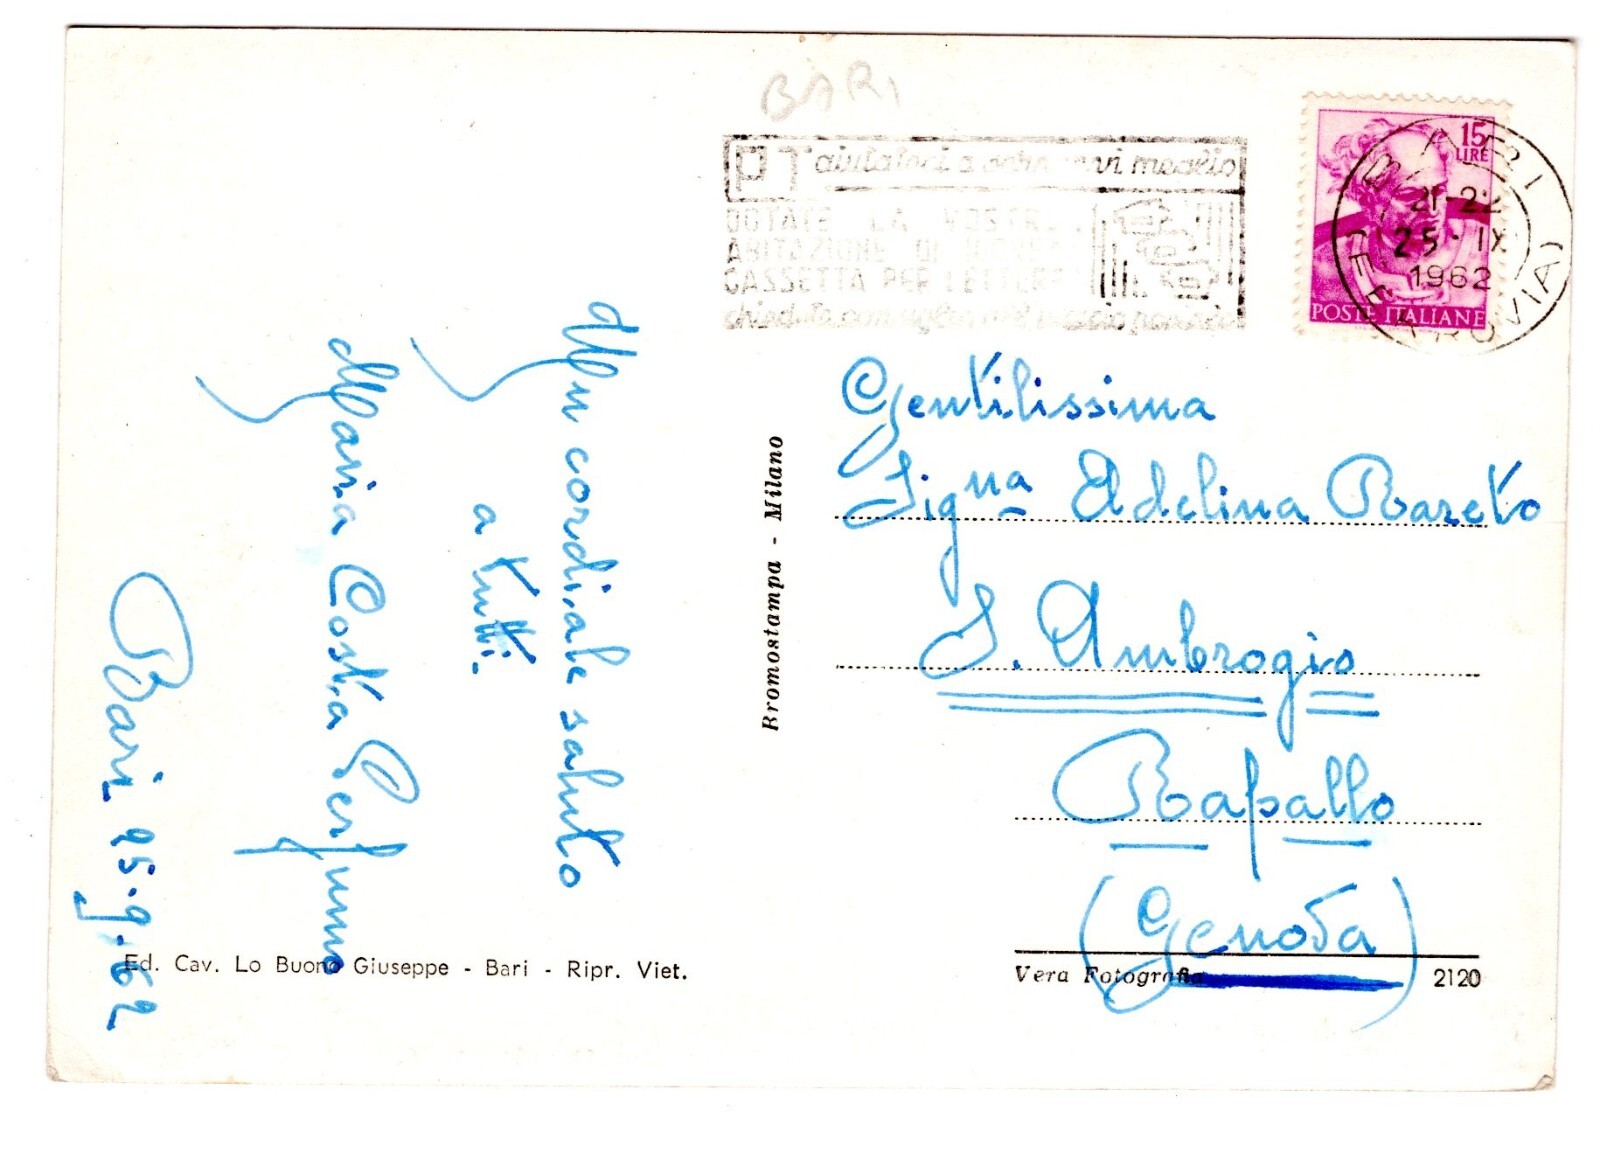 BARI
PT aiutateci a servirvi meglio
DOTATE LA VOSTRA
ABITAZIONE DI
CASSETTA PER LETTERE
15
LIRE
POSTE ITALIANE
BARI (FERROVIA)
21-22
25 - IX
1962
Un cordiale saluto
a tutti.
Maria Costa Perfumo
Bari 25-9-'62
Ed. Cav. Lo Buono Giuseppe - Bari - Ripr. Viet.
Bromostampa - Milano
Gentilissima
Sig.na Adelina Bareto
S. Ambrogio
Rapallo
(Genova)
Vera Fotografia
2120